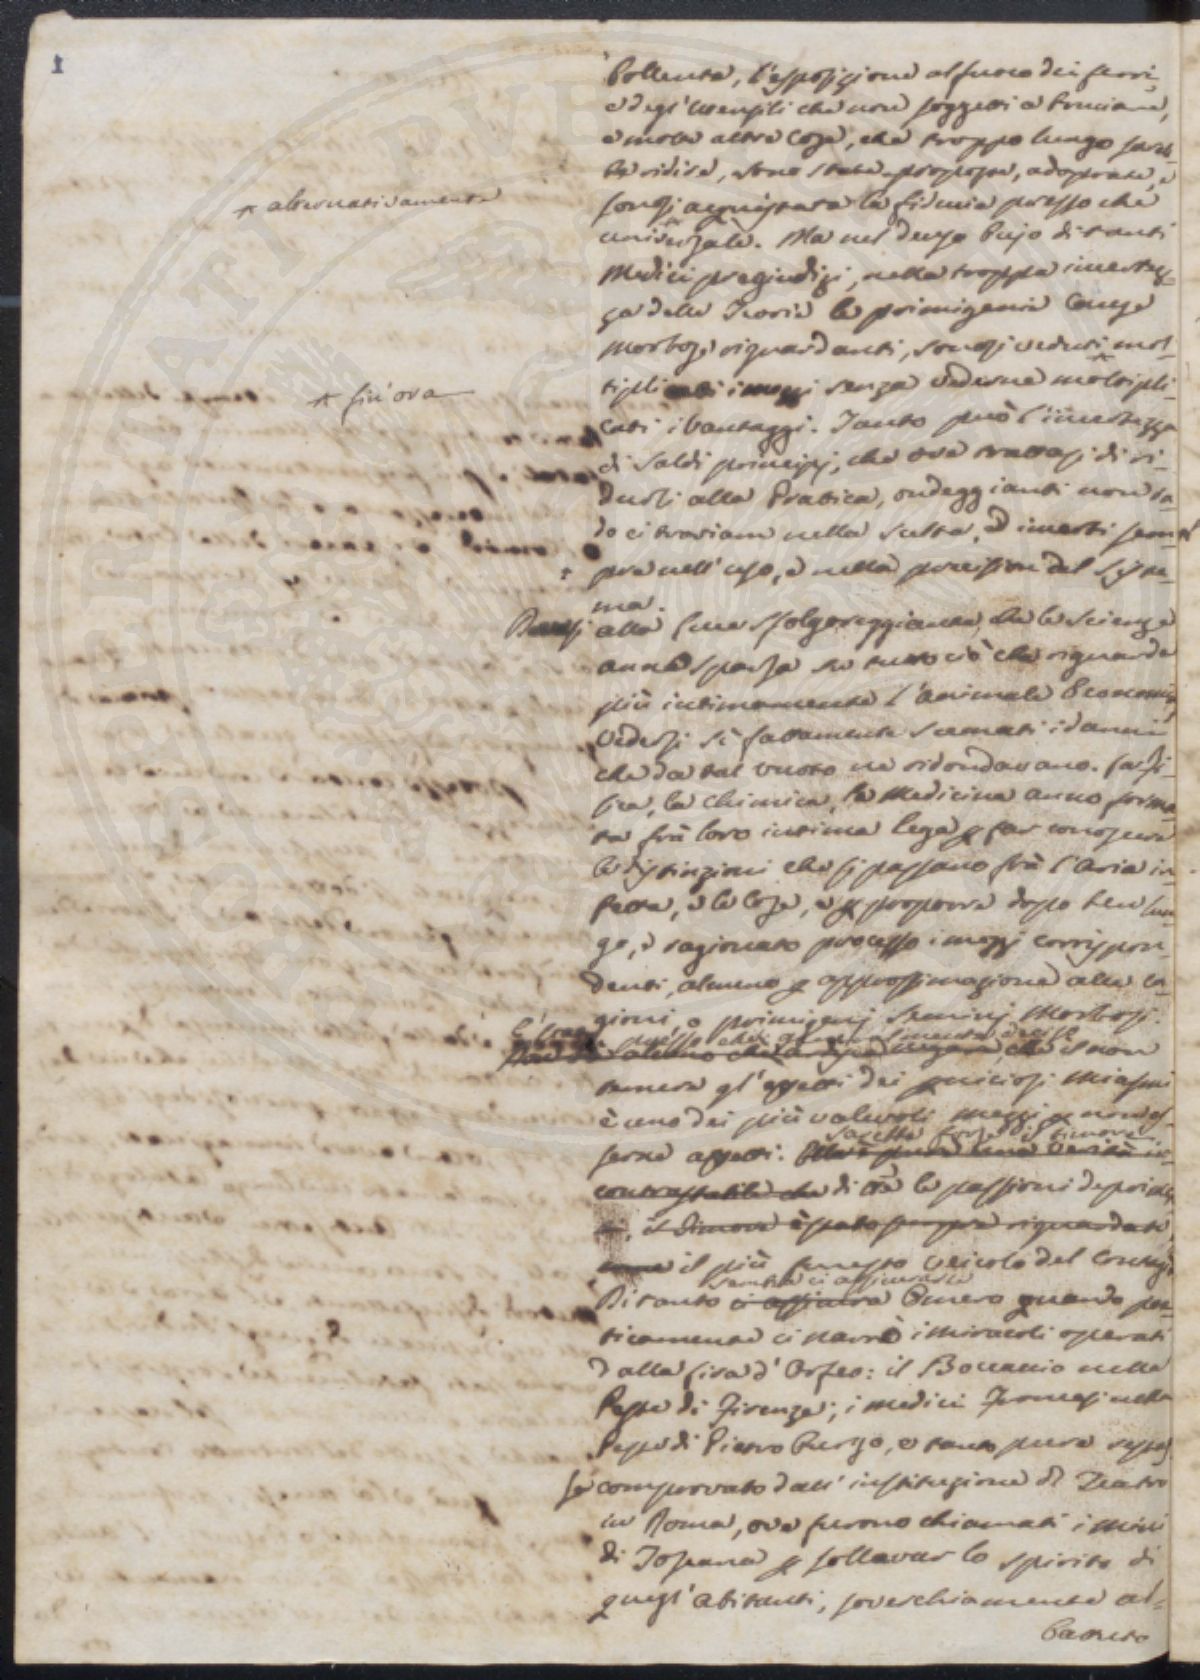 1
bollente, l'esposizione al fuoco dei ferri,
e degl'utensili che non soggetti a bruciare,
e molte altre cose, che troppo lungo sareb-
be ridire, sono state proposte, adoprate, e
sonosi acquistata la fiducia presso che
universale. Ma nel denso bujo di tanti
Medici pregiudizi, nella troppa incertez-
za delle Teorie le primigenie Cause
morbose riguardanti, sonosi veduti mol-
* alternativamente
tiplicati i mezzi senza vederne moltipli-
* fin'ora
cati i vantaggi. Tanto può l'incertezza
di saldi principj, che ove trattasi di ri-
durli alla Pratica, ondeggianti non ra-
do ci troviam nella scelta, ed incerti sem-
pre nell'uso, e nella precision del siste-
ma.
alla luce sfolgoreggiante, che le scienze
anno sparsa su tutto ciò che riguarda
più intimamente l'animale Economia,
vedersi sì fattamente scemati i danni
che da tal vuoto ne ridondavano. la fi-
sica, la Chimica, la Medicina anno forma-
ta frà loro intima lega p far conoscere
le distinzioni che si passano frà l'aria in-
fetta, e le cose, e p proporre dopo ben lun-
go, e ragionato processo i mezzi corrispon-
denti, almeno p approssimazione alle ca-
gioni, o primigenj semini morbosi.
che il non
temere gl'effetti dei perniciosi miasmi
è uno dei più valevoli mezzi p non es-
serne affetti.
sarebbe forse il timore
contrastabile che di tte le passioni deprimen-
ti, il Timore è stato sempre riguardato
come il più funesto veicolo del Contagio
sembra ci assicurasse
Di tanto ci assicura Omero quando poe-
ticamente ci narrò i miracoli operati
dalla lira d'Orfeo: il Boccaccio nella
Peste di Firenze; i medici Francesi nella
Peste di Pietro Burgo, e tanto pure resta
comprovato dall'instituzione di Teatro
in Roma, ove furono chiamati i mimi
di Toscana p sollevar lo spirito di
quegl'abitanti, soverchiamente ab-
battuto